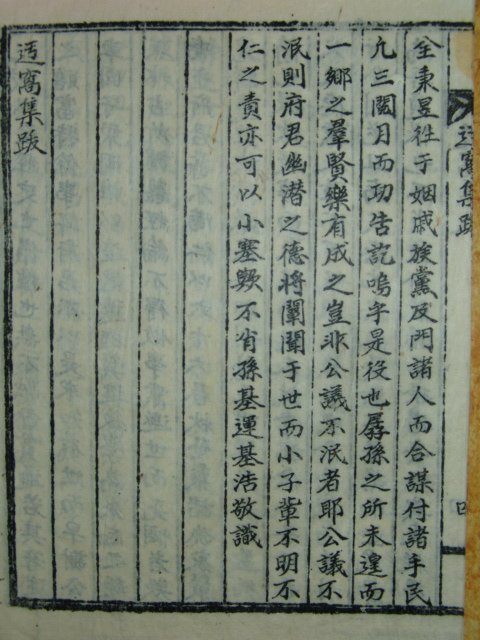 迃窩集跋
四
全秉昱徃于姻戚族黨及門諸人而合謀付諸手民
凢三閱月而功告訖嗚乎是役也孱孫之所未遑而
一鄉之羣賢樂有成之豈非公議不泯者耶公議不
泯則府君幽潜之德將闡聞于世而小子輩不明不
仁之責亦可以小塞歟不肖孫基運基浩敬識
迃窩集跋